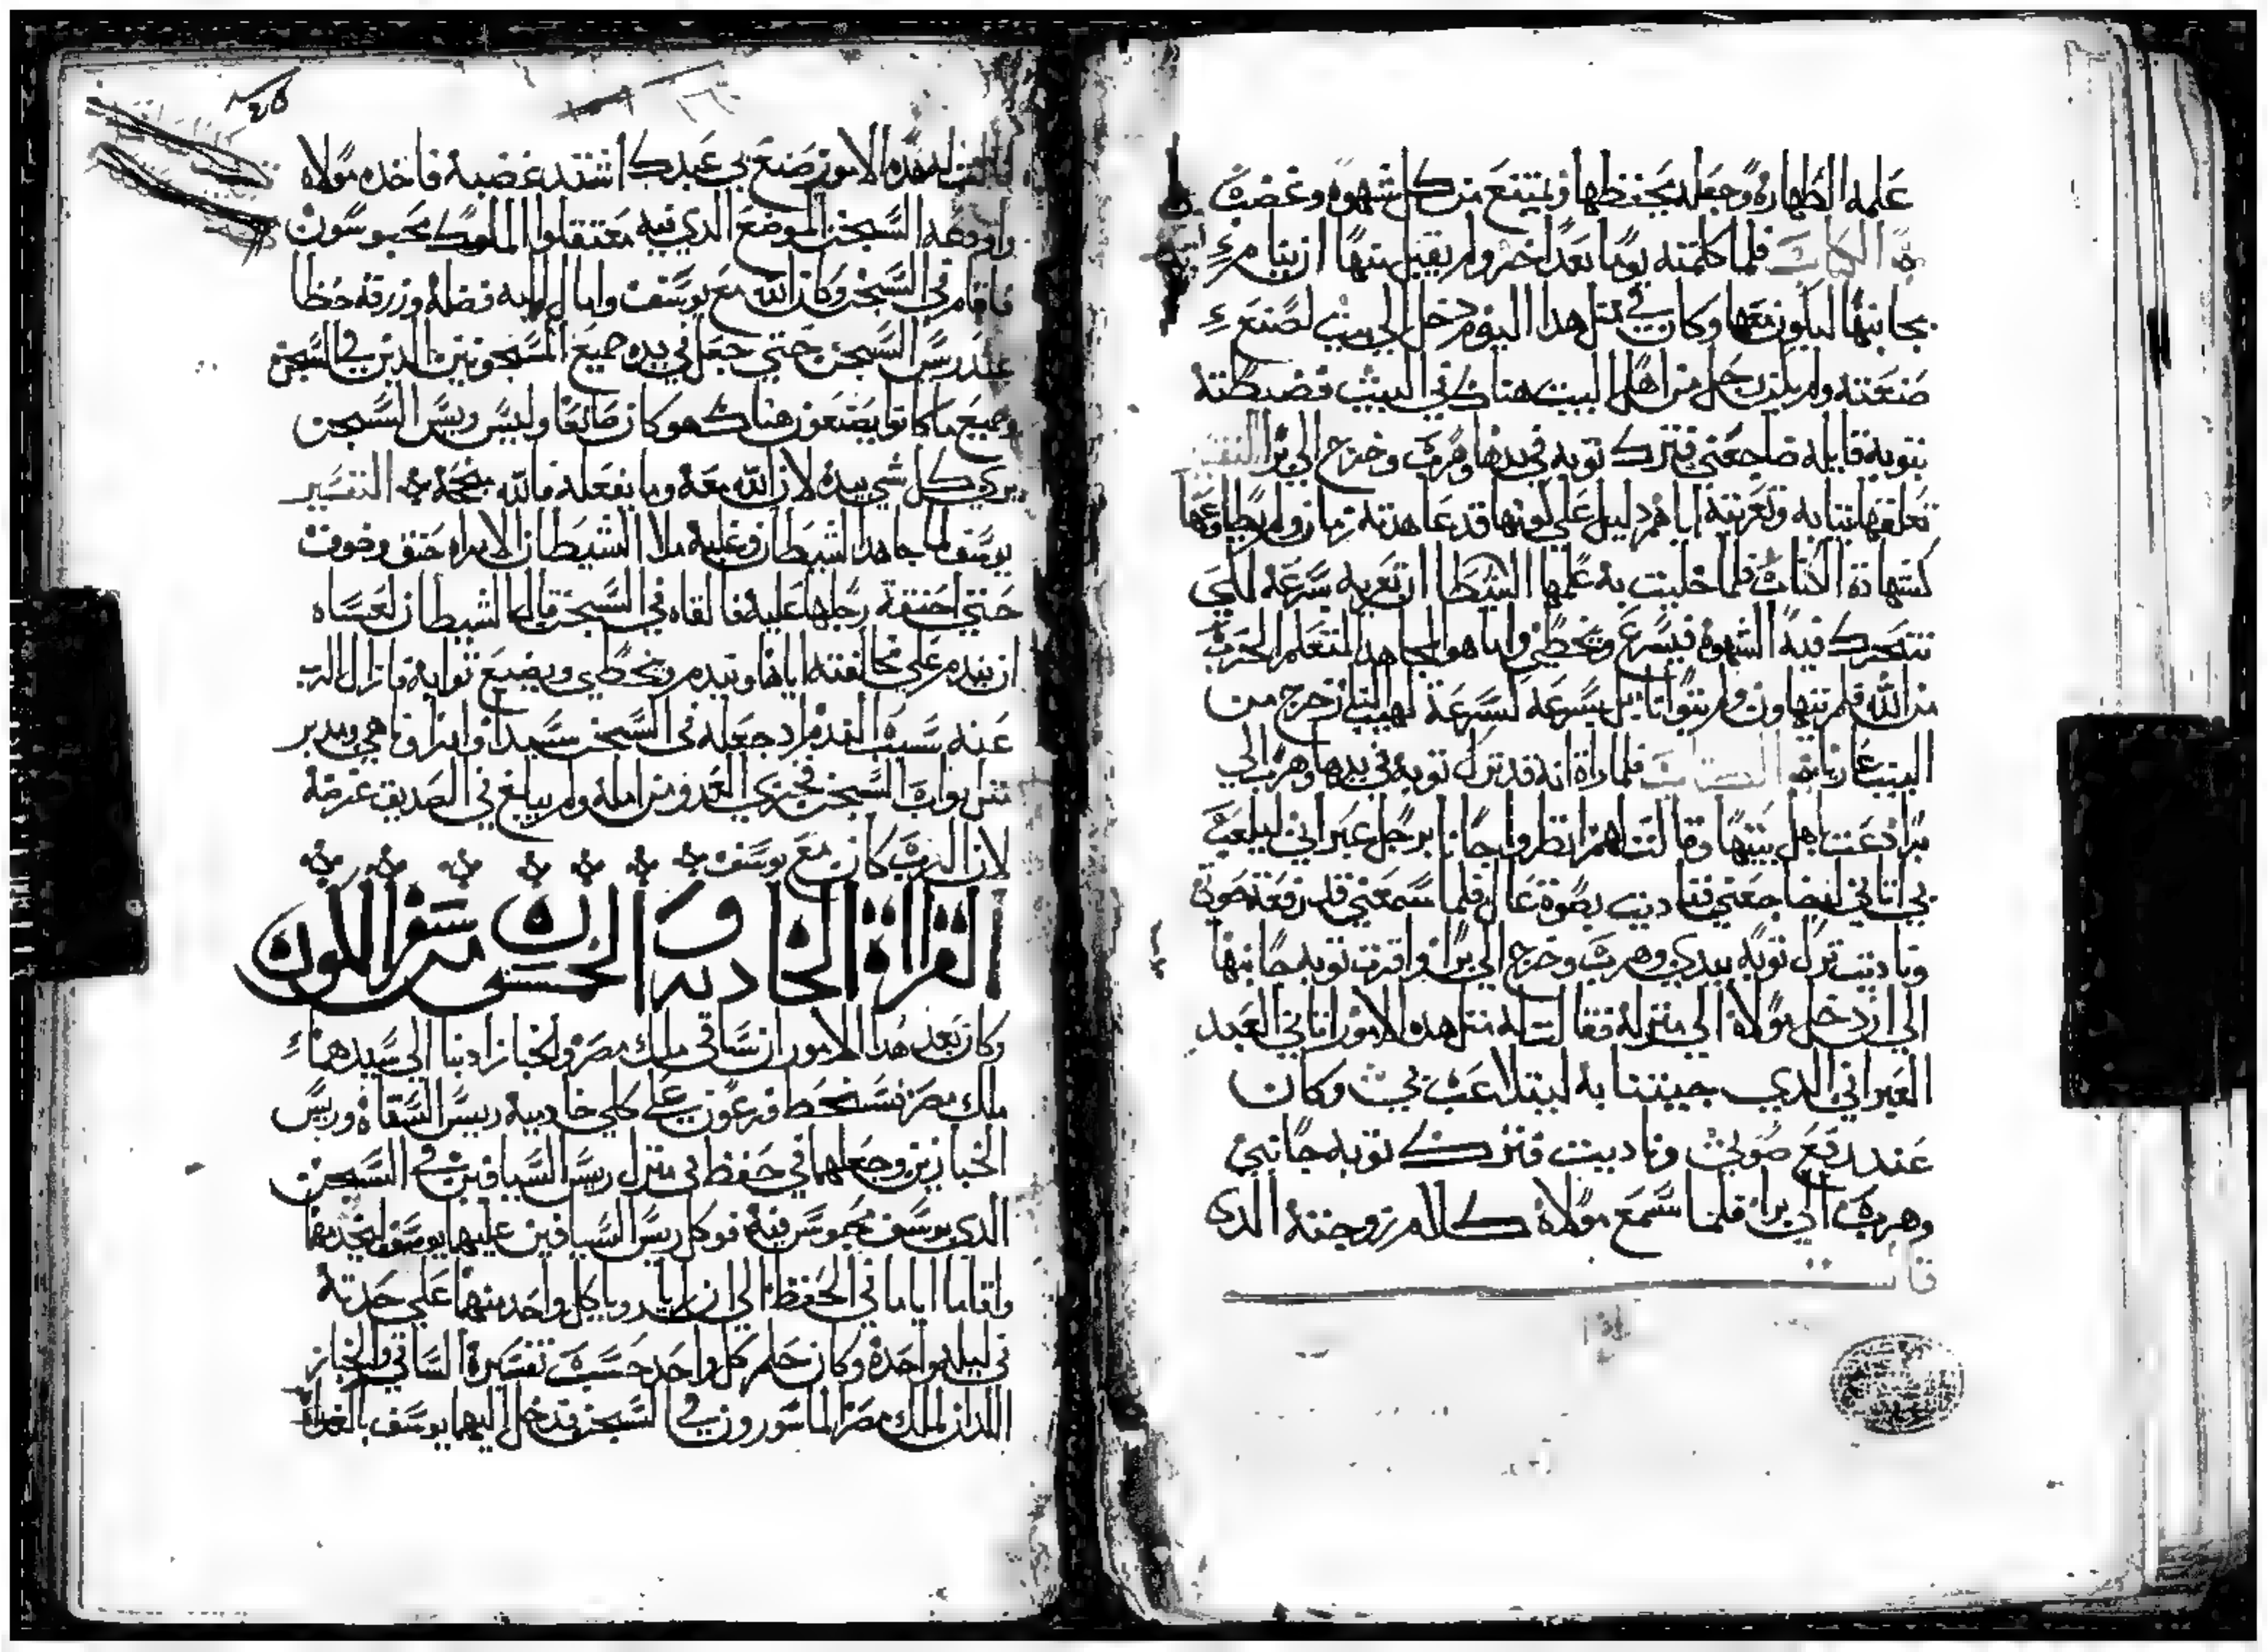 عليه الطهاره وجعله يحفظها ويمتنع من كل شهوه وغضب
الكتاب فلما كلمته يوما بعد اخر ولم يقبل منها ان ينام
بجانبها ليكون معها وكان في مثل هدا اليوم دخل الي بيته لصنع
صنعته ولم يكن رجل من اهل البيت هناك في البيت فضبطته
بتوبه قايله ضاجعني فترك توبه في يدها وهرب وخرج الي برا التفسير
تعلقها بتيابه وتعريته اياهم دليل علي كونها قد عاهدته زمان ولم يطاوعها
كشهادة الكتاب فلما خليت به علمها الشيطان ان تعريه بسرعه لكي
تتحرك فيه الشهوه فيسرع ويخطي واما هو المجاهد المتعلم الحرب
من الله فلم يتهاون ولم يتوانا بل بسرعه لسرعة لهيب النار خرج من
البيت عاريا هو الكتاب فلما راة انه قد ترك توبه في يدها وهرب الي
برا دعت اهل بيتها وقالت لهم انظروا جانا برجل عبراني ليلعب
بي اتاني ليضاجعني فناديت بصوة عال فلما سمعني قد رفعة صوتي
وناديت ترك توبه بيدي وهرب وخرج الي برا واقرت توبه بجانبها
الي ان دخل مولاه الي منزله فقالت له متل هده الامور اتاني العبد
العبراني الدي جيتنا به ليتلاعب بي وكان
عند رفع صوتي وناديت فترك توبه جانبي
وهرب الي برا فلما سمع مولاه كلام زوجته الدي
قا
قالت له هده الامور صنع بي عبدك اشتد غضبه فاخده مولاه
واودعه السجن الموضع الدي فيه معتقلوا الملوك محبوسون
فاقام في السجن وكان الله مع يوسف وامال اليه فضله ورزقه حظا
عند ريس السجن حتي جعل في يده جميع المسجونين الدين في السجن
وجميع ما كانوا يصنعون هناك هو كان صانعا وليس ريس السجن
يري كل شي بيده لان الله معه وما يفعله فالله ينجحه التفسير
يوسف لما جاهد الشيطان وغلبه ملا الشيطان الامراه حنق وخوف
حتي احنقة رجلها عليه فالقاه في السجن قالها الشيطان لعساه
ان يندم علي مخالفته اياها ويندم ويخطي ويضيع توابه فازال الرب
عنه سبب الندم اد جعله في السجن سيدا وامرا وناهي ومدبر
متل بواب السجن فخزي العدو من امله ولم يبلغ في الصديق غرضه
لان الرب كان مع يوسف
القراة الحاديه والخمسين من سفر الكون
وكان بعد هدا الامور ان ساقي ملك مصر والخباز ادنبا الي سيدهما
ملك مصر فسخط فرعون علي كلي خادميه ريس السقاه وريس
الخبازين وجعلهما في حفظ في منزل ريس السيافين في السجن
الدي يوسف محبوس فيه فوكل ريس السيافين عليهما يوسف ليخدمهما
واقاما اياما في الحفظ الي ان رايا رويا كل واحد منهما علي حدته
في ليله واحده وكان حلم كل واحد حسب تفسيرة الساقي والخباز
اللدان لملك مصر الماسورون في السجن فدخل اليهما يوسف بالغداه